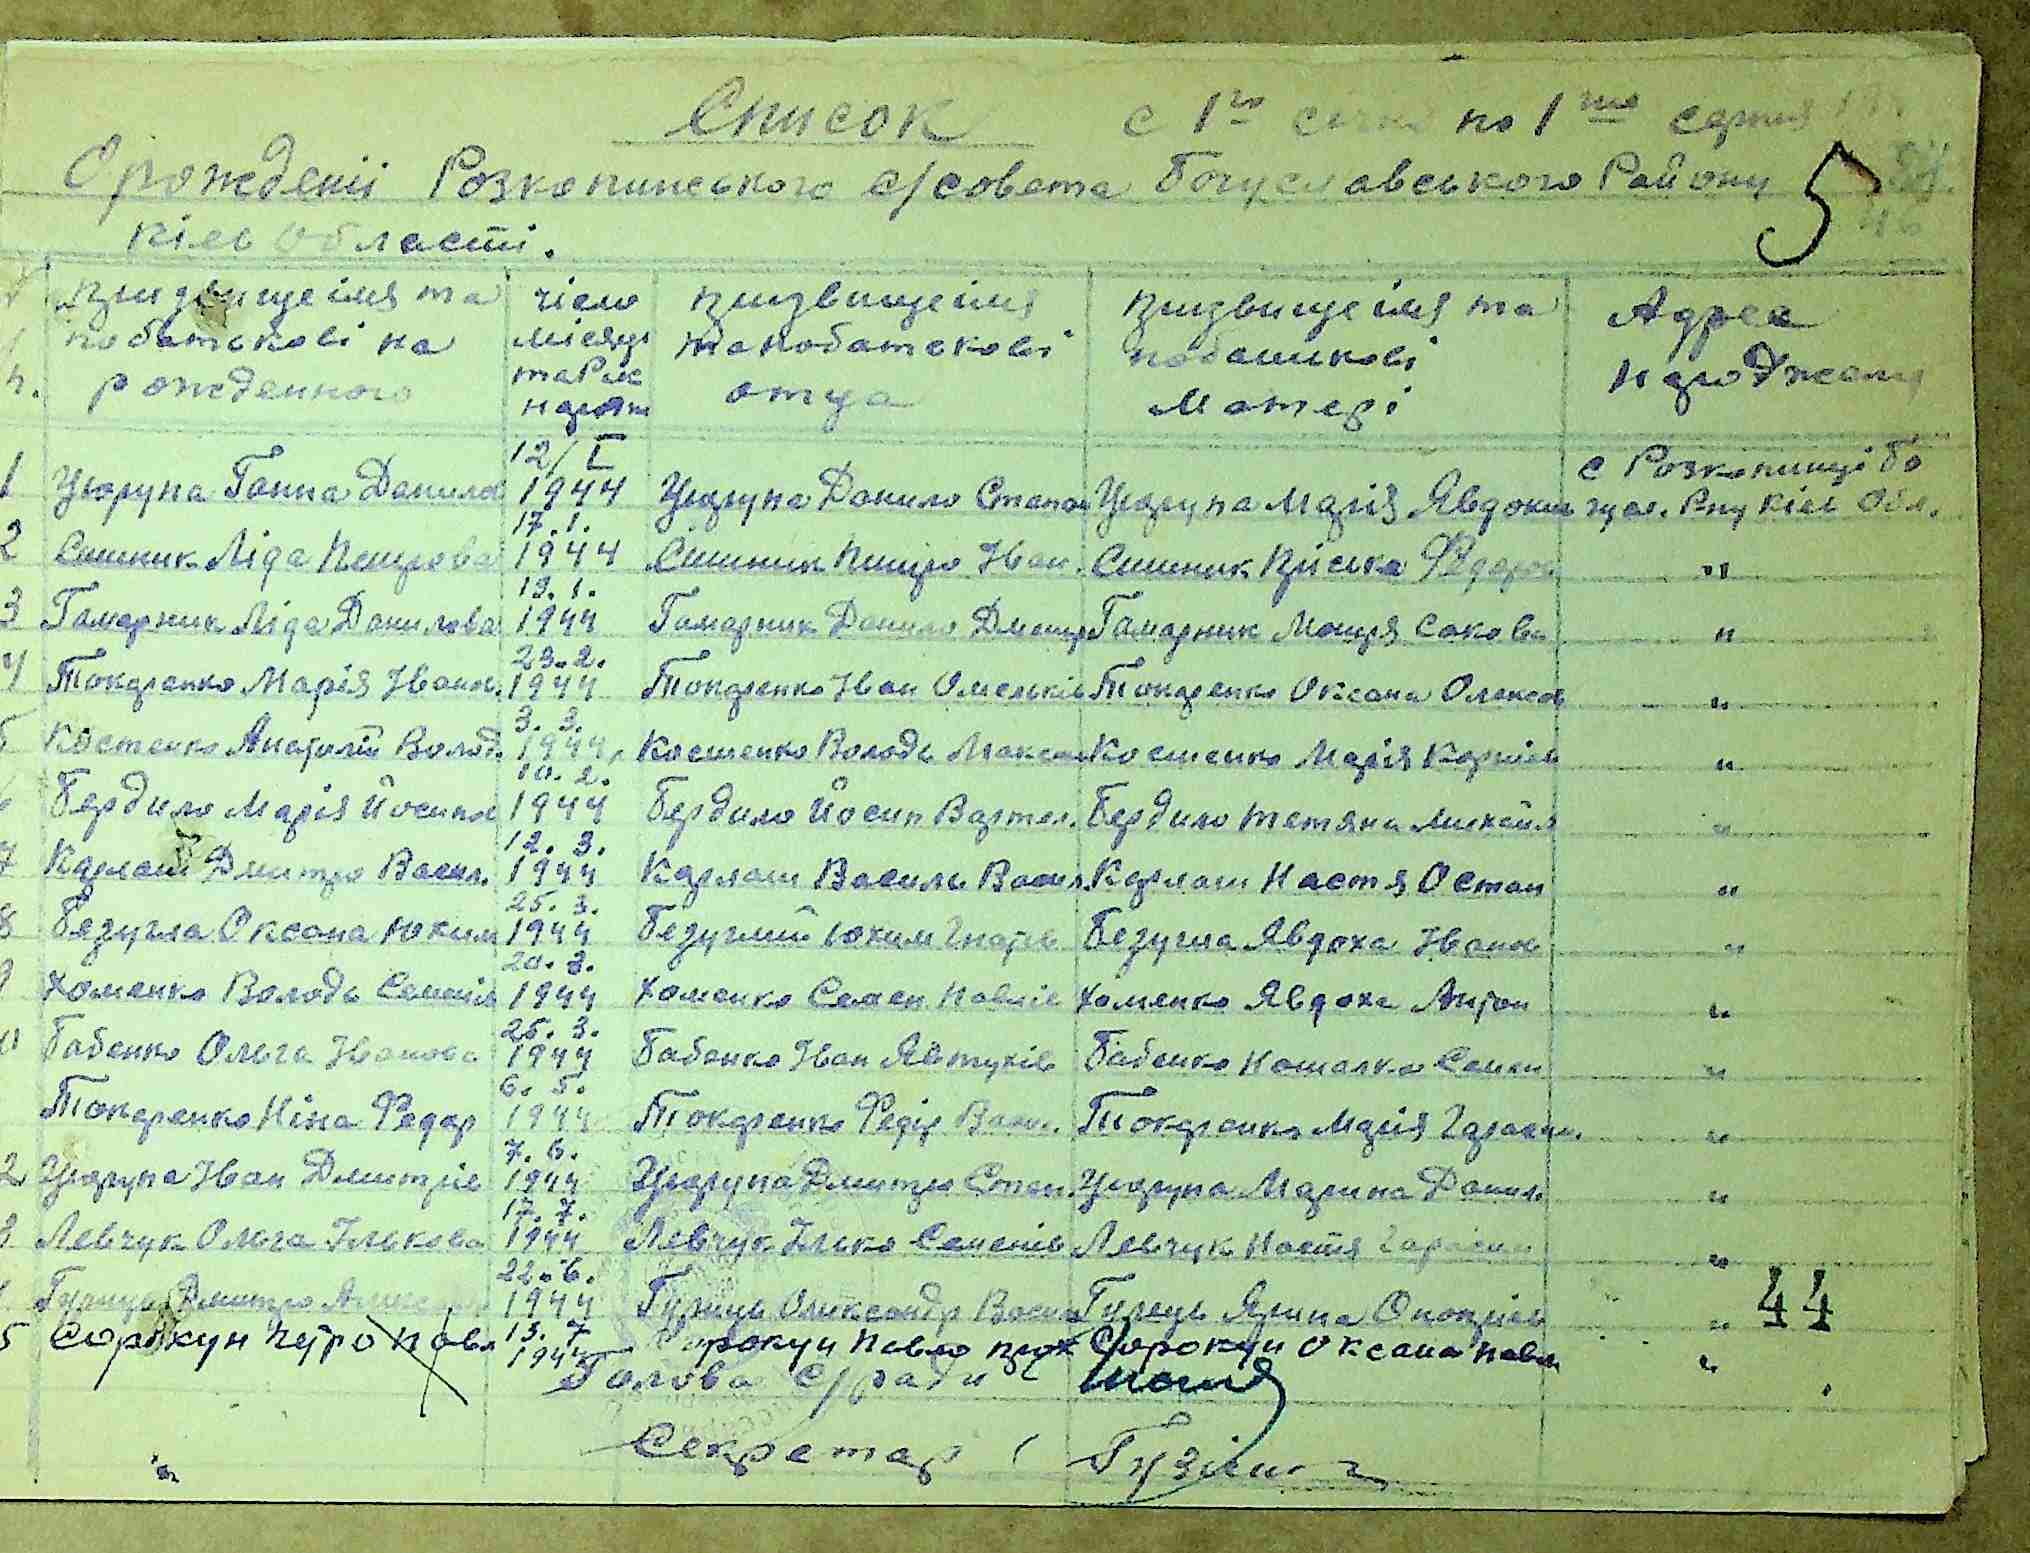 Список с 1го січня по 1ше серпня
Срожденіі Розкопинського с/совета Богуславського Району
Київ Області.
призвище імя та побатькові на рожденного
число місяць та Рік нарож
призвище імя та побатькові отца
призвище імя та побатькові Матері
Адреса народжения
5
1 Цюрупа Ганна Данилов 12/I 1944 Цюрупа Данило Степан Цюрупа Марія Явдоким с Розкопинці Богусл. Рну Київ Обл.
2 Сшиник Ліда Петрова 17.1. 1944 Сшиник Питро Іван. Сшиник Пріська Федоров "
3 Гамарник Ліда Данилова 19.1. 1944 Гамарник Данило Дмитр Гамарник Мотря Сакова "
4 Токаренко Марія Іванов. 23.2. 1944 Токаренко Іван Омельків Токаренко Оксана Олексов "
5 Костенко Анатолій Волод. 3.3. 1944 Костенко Володь Максим Костенко Марія Корнієв "
6 Бердило Марія Йосипов 10.2. 1944 Бердило Йосип Вартол. Бердило Тетяна Михайл "
7 Карлаш Дмитро Васил. 12.3. 1944 Карлаш Василь Васил. Карлаш Настя Остап "
8 Безугла Оксана Юхим 25.3. 1944 Безуглий Юхим Гнатів Безугла Явдоха Іванов "
9 Хоменко Володь Семенів 20.3. 1944 Хоменко Семен Павлів Хоменко Явдоха Антон "
10 Бабенко Ольга Іванова 25.3. 1944 Бабенко Іван Явтухів Бабенко Наталка Семен "
Токаренко Ніна Федор 6.5. 1944 Токаренко Федір Васил. Токаренко Марія Гарасим. "
2 Цюрупа Іван Дмитрів 7.6. 1944 Цюрупа Дмитро Степ. Цюрупа Марина Данил. "
3 Левчук Ольга Ількова 17.7. 1944 Левчук Ілько Семенів Левчук Настя Гарасим "
Гурець Дмитро 22.6. 1944 Гурець Олександр Васил Гурець Ярина Оноприєв " 44
5 Сорокун Петро Павл 13.7 1944 Сорокун Павло прок Сорокун Оксана Павл "
Голова с/ради
Секретар